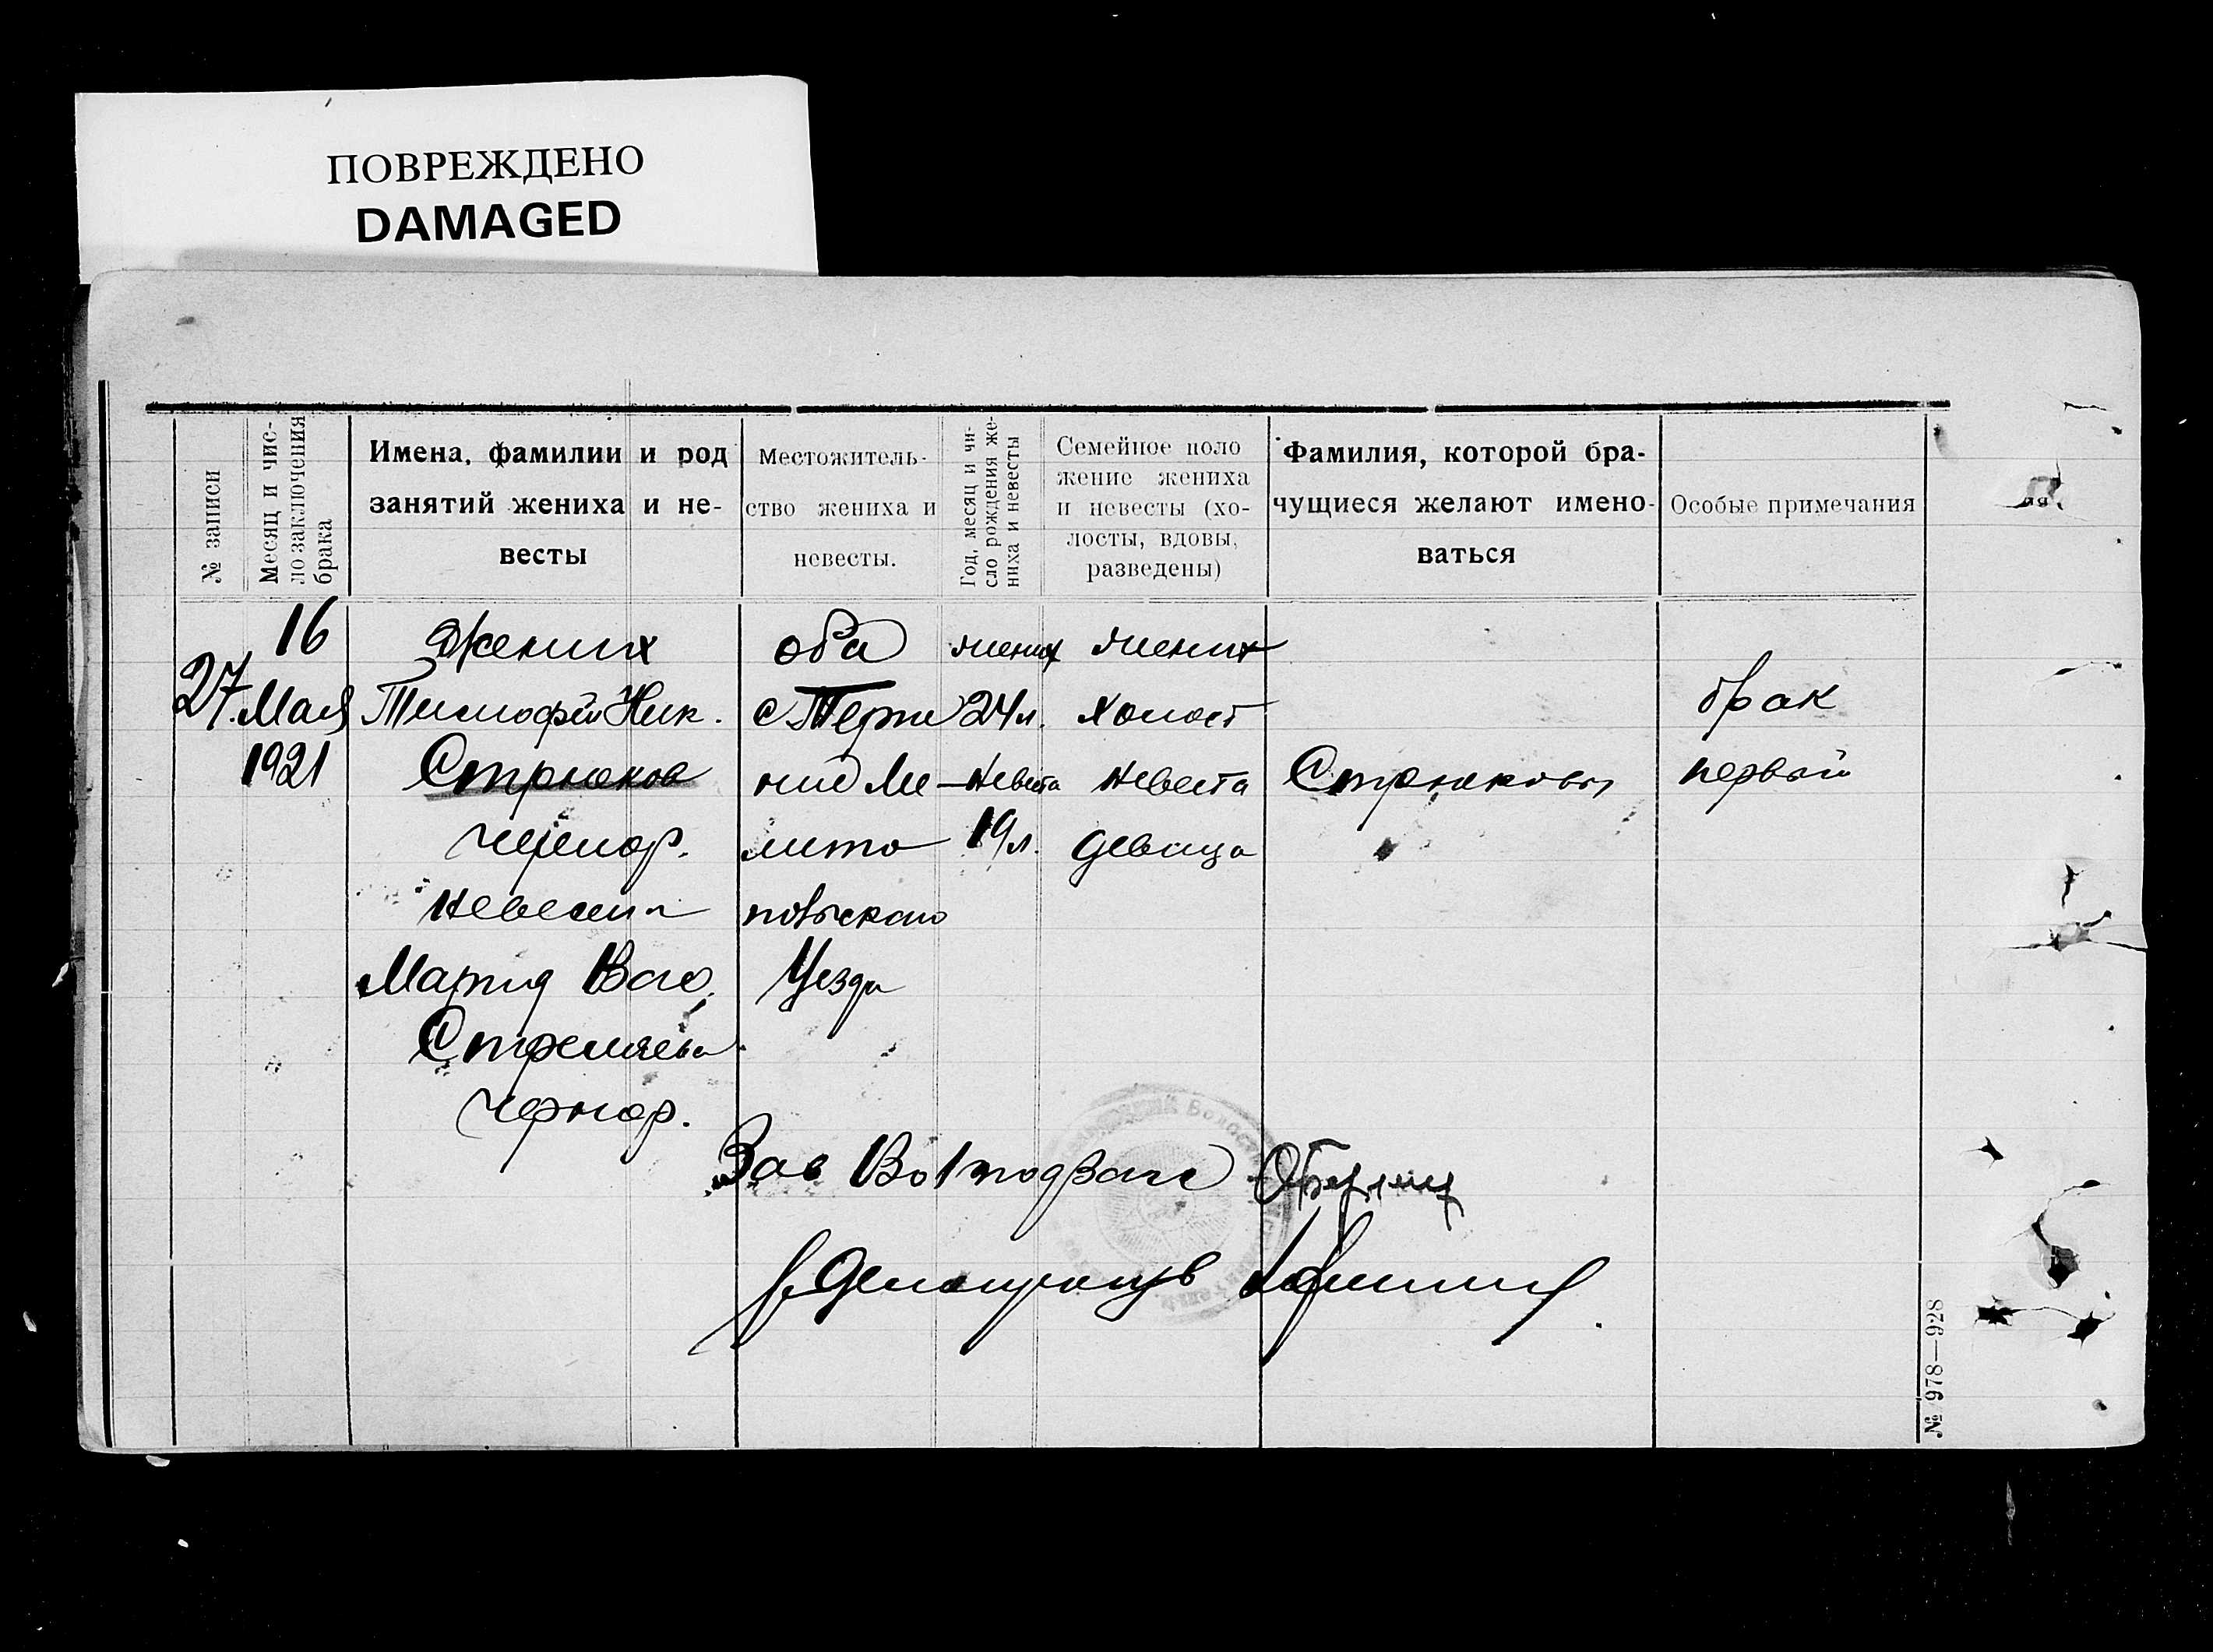 ПОВРЕЖДЕНО
DAMAGED
№ записи
Месяц и чис-
ло заключения
брака
Имена, фамилии и род
занятий жениха и не-
весты
Местожитель-
ство жениха и
невесты.
Год, месяц и чи-
сло рождения же-
ниха и невесты
Семейное поло
жение жениха
и невесты (хо-
лосты, вдовы,
разведены)
Фамилия, которой бра-
чущиеся желают имено-
ваться
Особые примечания
27.
16
Мая
1921
Жених
Тимофей Ник.
Стрюков
чернор.
Невеста
Мария Вас.
чернор.
оба
с Терно
вие Ме-
лито
польскаго
Уезда
жених
24 л.
Невеста
19 л.
жених
холост
Невеста
девица
Стрюковы
брак
первый
Зав
№ 978—928